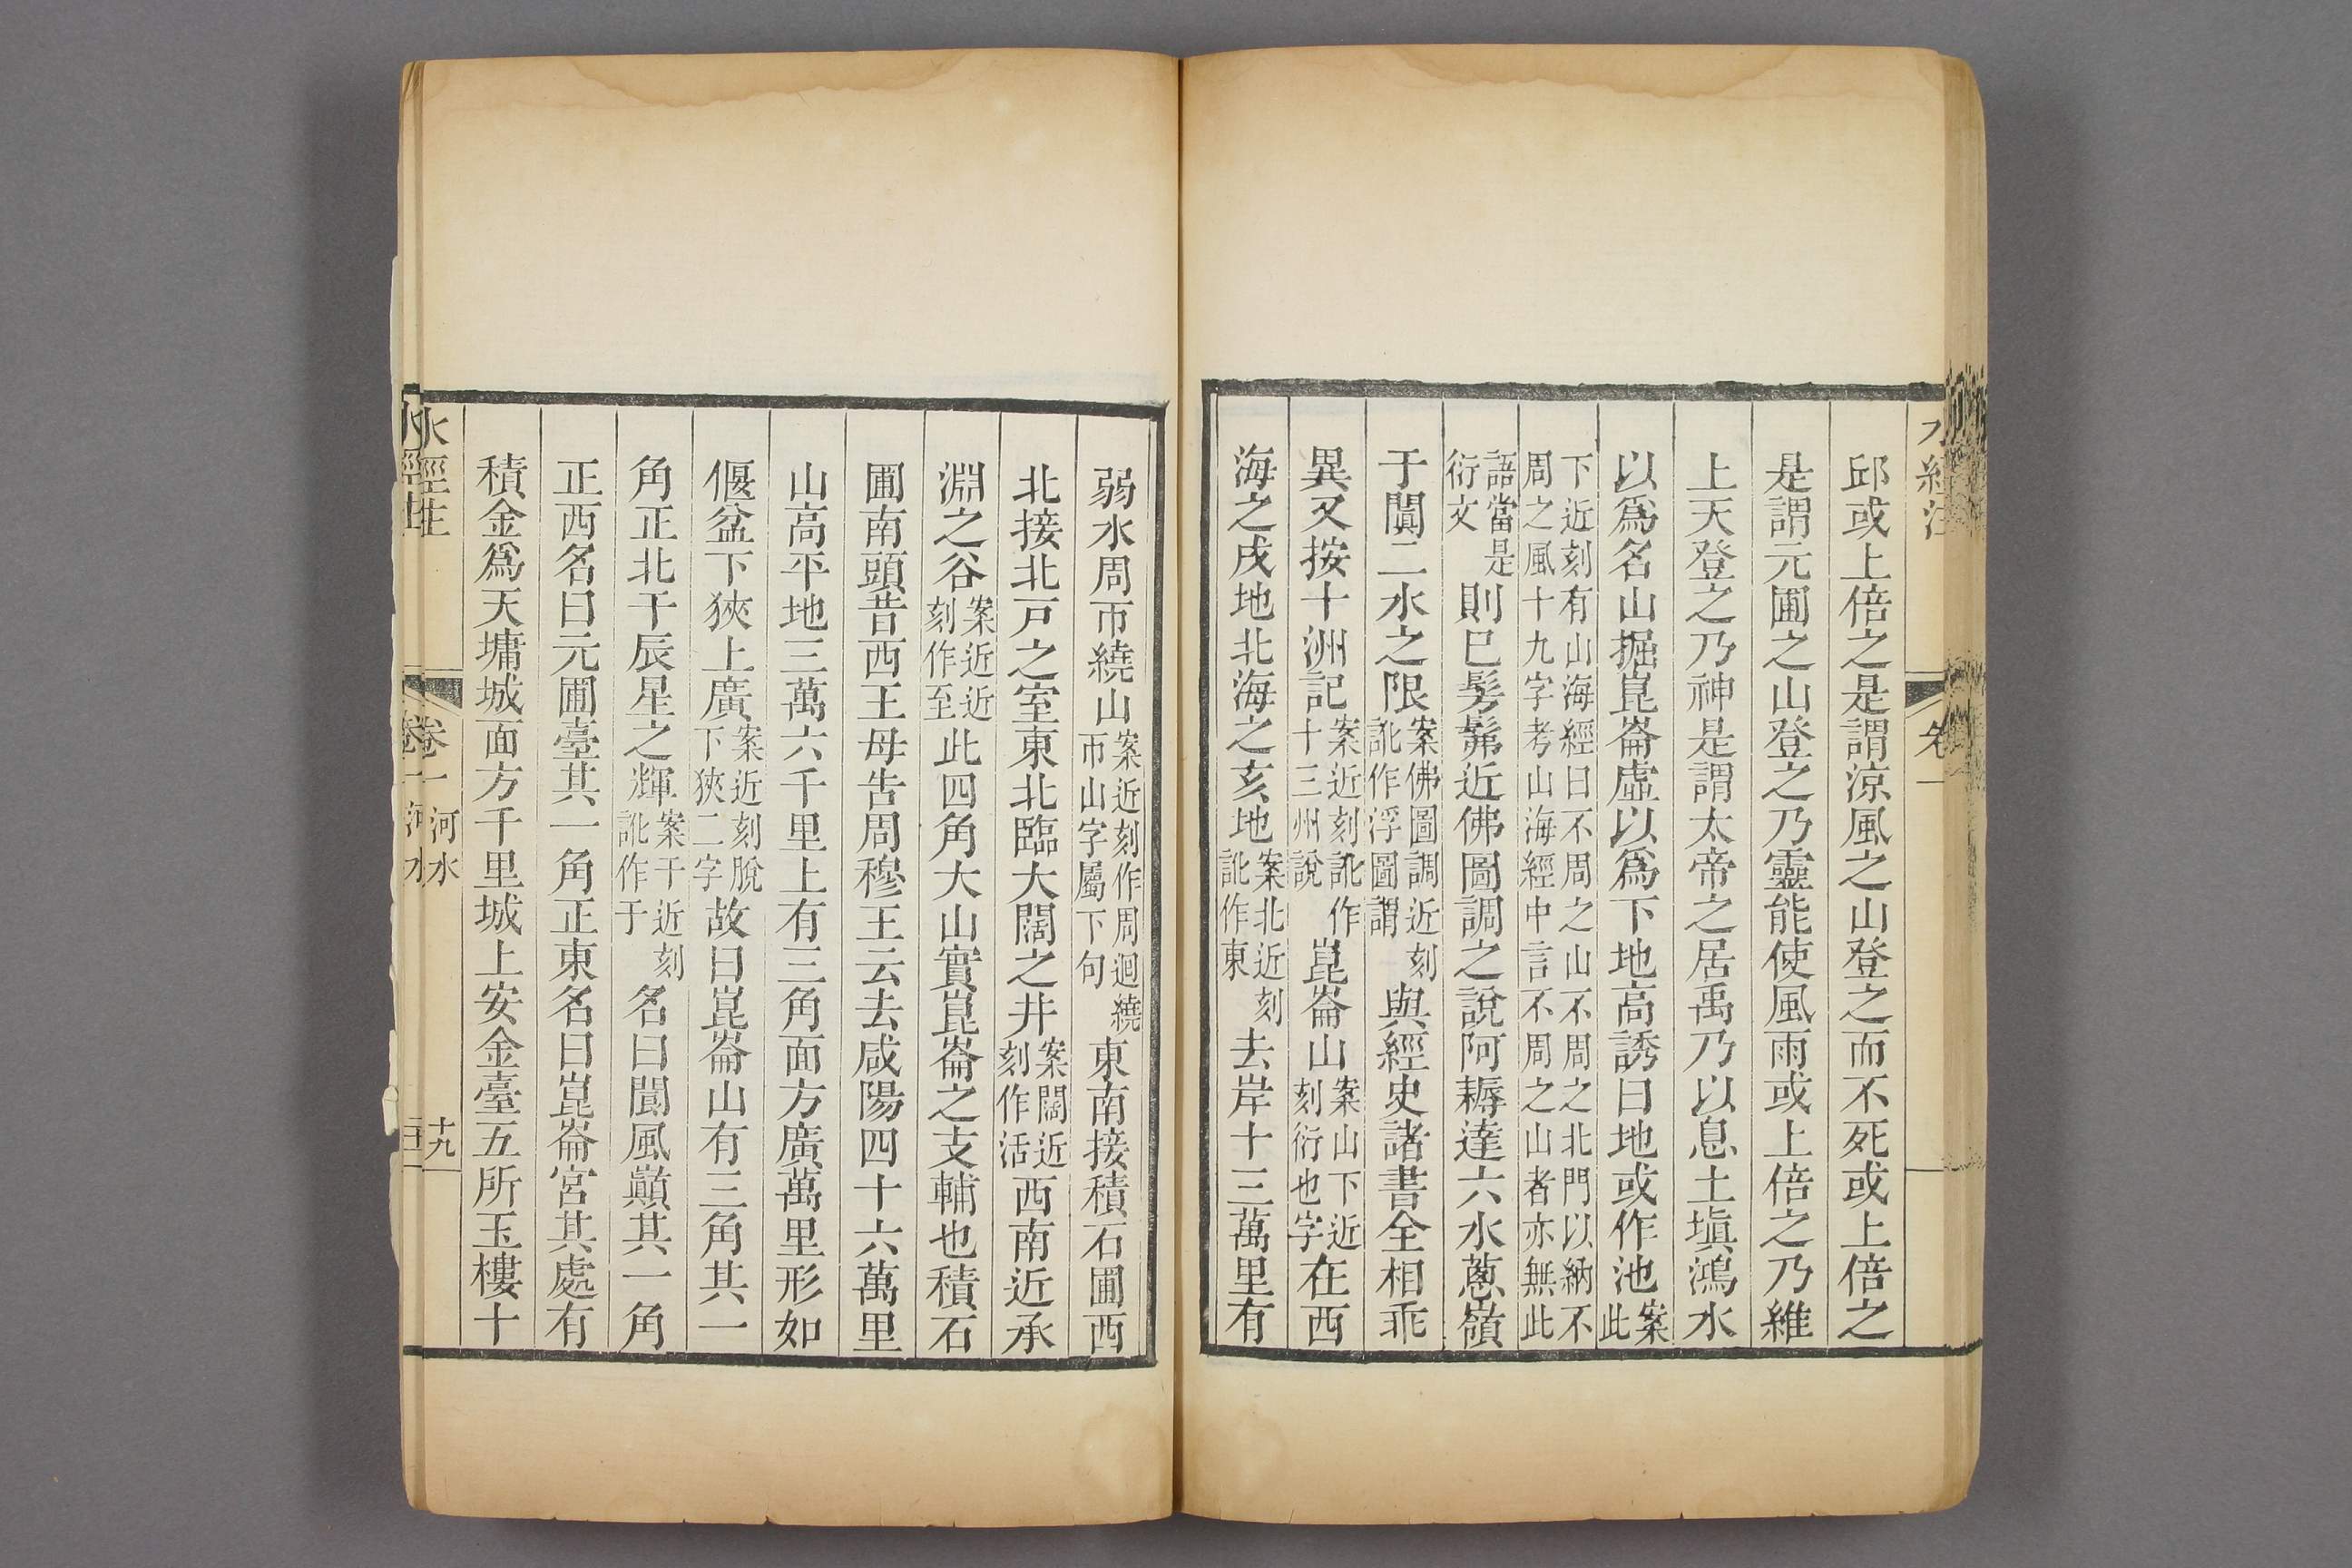 水經注 卷一
邱或上倍之是謂涼風之山登之而不死或上倍之
是謂元圃之山登之乃靈能使風雨或上倍之乃維
上天登之乃神是謂太帝之居禹乃以息土塡鴻水
以爲名山掘崑崙虛以爲下地高誘曰地或作池案此
下近刻有山海經曰不周之山不周之北門以納不
周之風十九字考山海經中言不周之山者亦無此
語當是衍文則巳髣髴近佛圖調之說阿耨達六水蔥嶺
于闐二水之限案佛圖調近刻訛作浮圖謂與經史諸書全相乖
異又按十洲記案近刻訛作十三州說崑崙山案山下近刻衍也字在西
海之戌地北海之亥地案北近刻訛作東去岸十三萬里有
弱水周帀繞山案近刻作周迴繞帀山字屬下句東南接積石圃西
北接北戸之室東北臨大闊之井案闊近刻作活西南近承
淵之谷案近近刻作至此四角大山實崑崙之支輔也積石
圃南頭昔西王母告周穆王云去咸陽四十六萬里
山高平地三萬六千里上有三角面方廣萬里形如
偃盆下狹上廣案近刻脫下狹二字故曰崑崙山有三角其一
角正北干辰星之輝案干近刻訛作于名曰閬風巔其一角
正西名曰元圃臺其一角正東名曰崑崙宮其處有
積金爲天墉城面方千里城上安金臺五所玉樓十
水經注 卷一 河水 十九